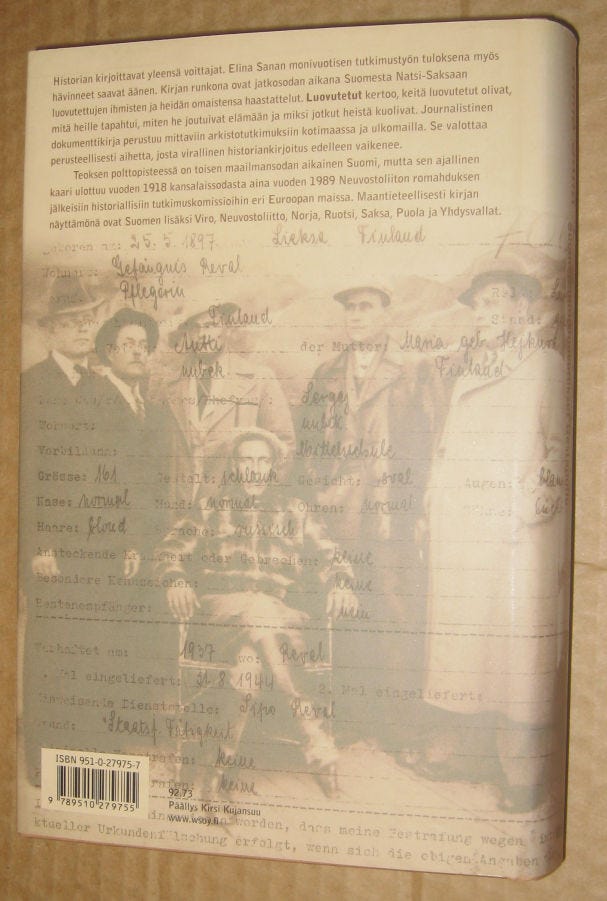 Historian kirjoittavat yleensä voittajat. Elina Sanan monivuotisen tutkimustyön tuloksena myös
hävinneet saavat äänen. Kirjan runkona ovat jatkosodan aikana Suomesta Natsi-Saksaan
luovutettujen ihmisten ja heidän omaistensa haastattelut. Luovutetut kertoo, keitä luovutetut olivat,
mitä heille tapahtui, miten he joutuivat elämään ja miksi jotkut heistä kuolivat. Journalistinen
dokumenttikirja perustuu mittaviin arkistotutkimuksiin kotimaassa ja ulkomailla. Se valottaa
perusteellisesti aihetta, josta virallinen historiankirjoitus edelleen vaikenee.
Teoksen polttopisteessä on toisen maailmansodan aikainen Suomi, mutta sen ajallinen
kaari ulottuu vuoden 1918 kansalaissodasta aina vuoden 1989 Neuvostoliiton romahduksen
jälkeisiin historiallisiin tutkimuskomissioihin eri Euroopan maissa. Maantieteellisesti kirjan
näyttämönä ovat Suomen lisäksi Viro, Neuvostoliitto, Norja, Ruotsi, Saksa, Puola ja Yhdysvallat.
25. 5. 1897 Lieksa Finland
Gefängnis Reval
Pflegerin
Finland
Antti der Mutter: Maria geb.
unbek Finland
Sergej
unbek
Vorbildung: Mittelschule
Grösse: 161 Gestalt: schlank Gesicht: oval Augen:
Nase: normal Mund: normal Ohren: normal
Haare: blond Sprache: russisch
Ansteckende Krankheit oder Gebrechen: keine
Besondere Kennzeichen: keine
Rentenempfänger: nein
Verhaftet am: 1937 wo: Reval
Mal eingeliefert: 31. 8. 1944 2. Mal eingeliefert:
Einweisende Dienststelle: Sipo Reval
keine
keine
worden, dass meine Bestrafung wegen
ktueller Urkundenfälschung erfolgt, wenn sich die obigen Angaben
ISBN 951-0-27975-7
9 789510 279755
92.73
Päällys Kirsi Kujansuu
www.wsoy.fi